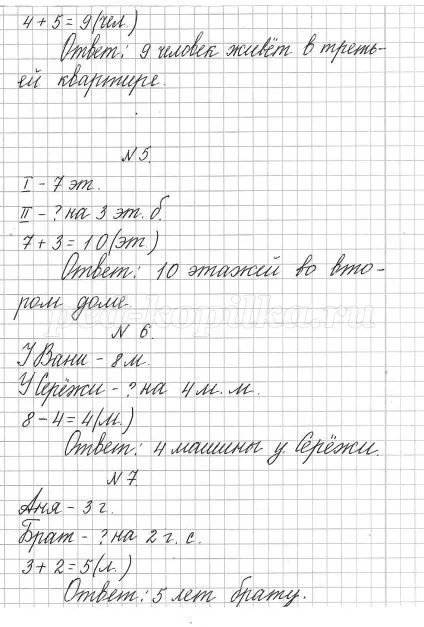 4 + 5 = 9 (чел.)
Ответ: 9 человек живёт в треть-
ей квартире.
№ 5.
I - 7 эт.
II - ? на 3 эт. б.
7 + 3 = 10 (эт.)
Ответ: 10 этажей во вто-
ром доме.
№ 6.
У Вани - 8 м.
У Серёжи - ? на 4 м. м.
8 - 4 = 4 (м.)
Ответ: 4 машины у Серёжи.
№ 7
Аня - 3 г.
Брат - ? на 2 г. с.
3 + 2 = 5 (л.)
Ответ: 5 лет брату.